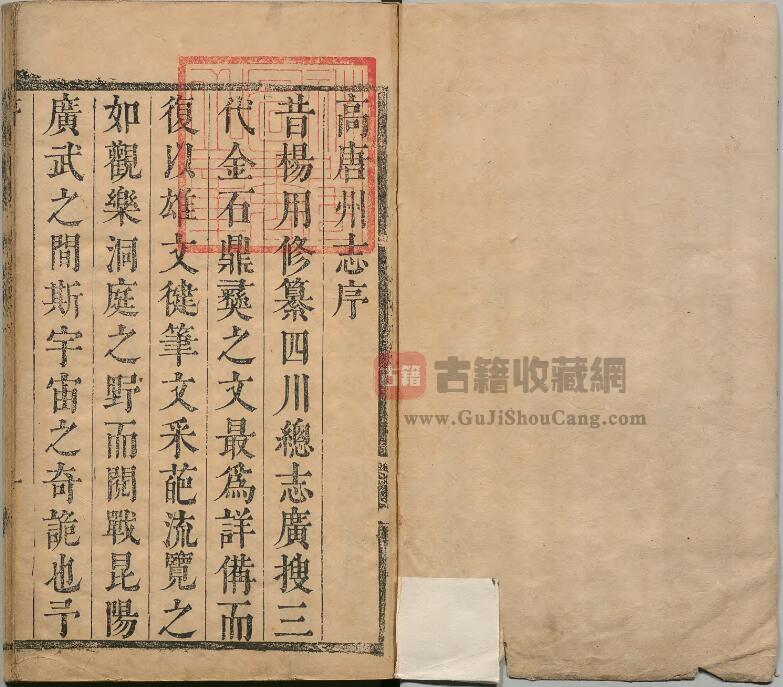 高唐州志序
昔楊用修纂四川總志廣搜三
代金石鼎彝之文最為詳備而
復以雄文健筆文采葩流覽之
如觀樂洞庭之野而閱戰昆陽
廣武之間斯宇宙之奇詭也予
序
一
古籍
古籍收藏網
www.GuJiShouCang.com